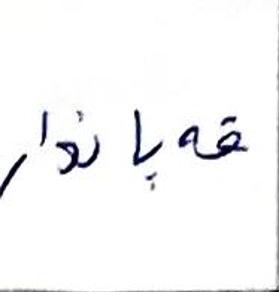 قەپاندار